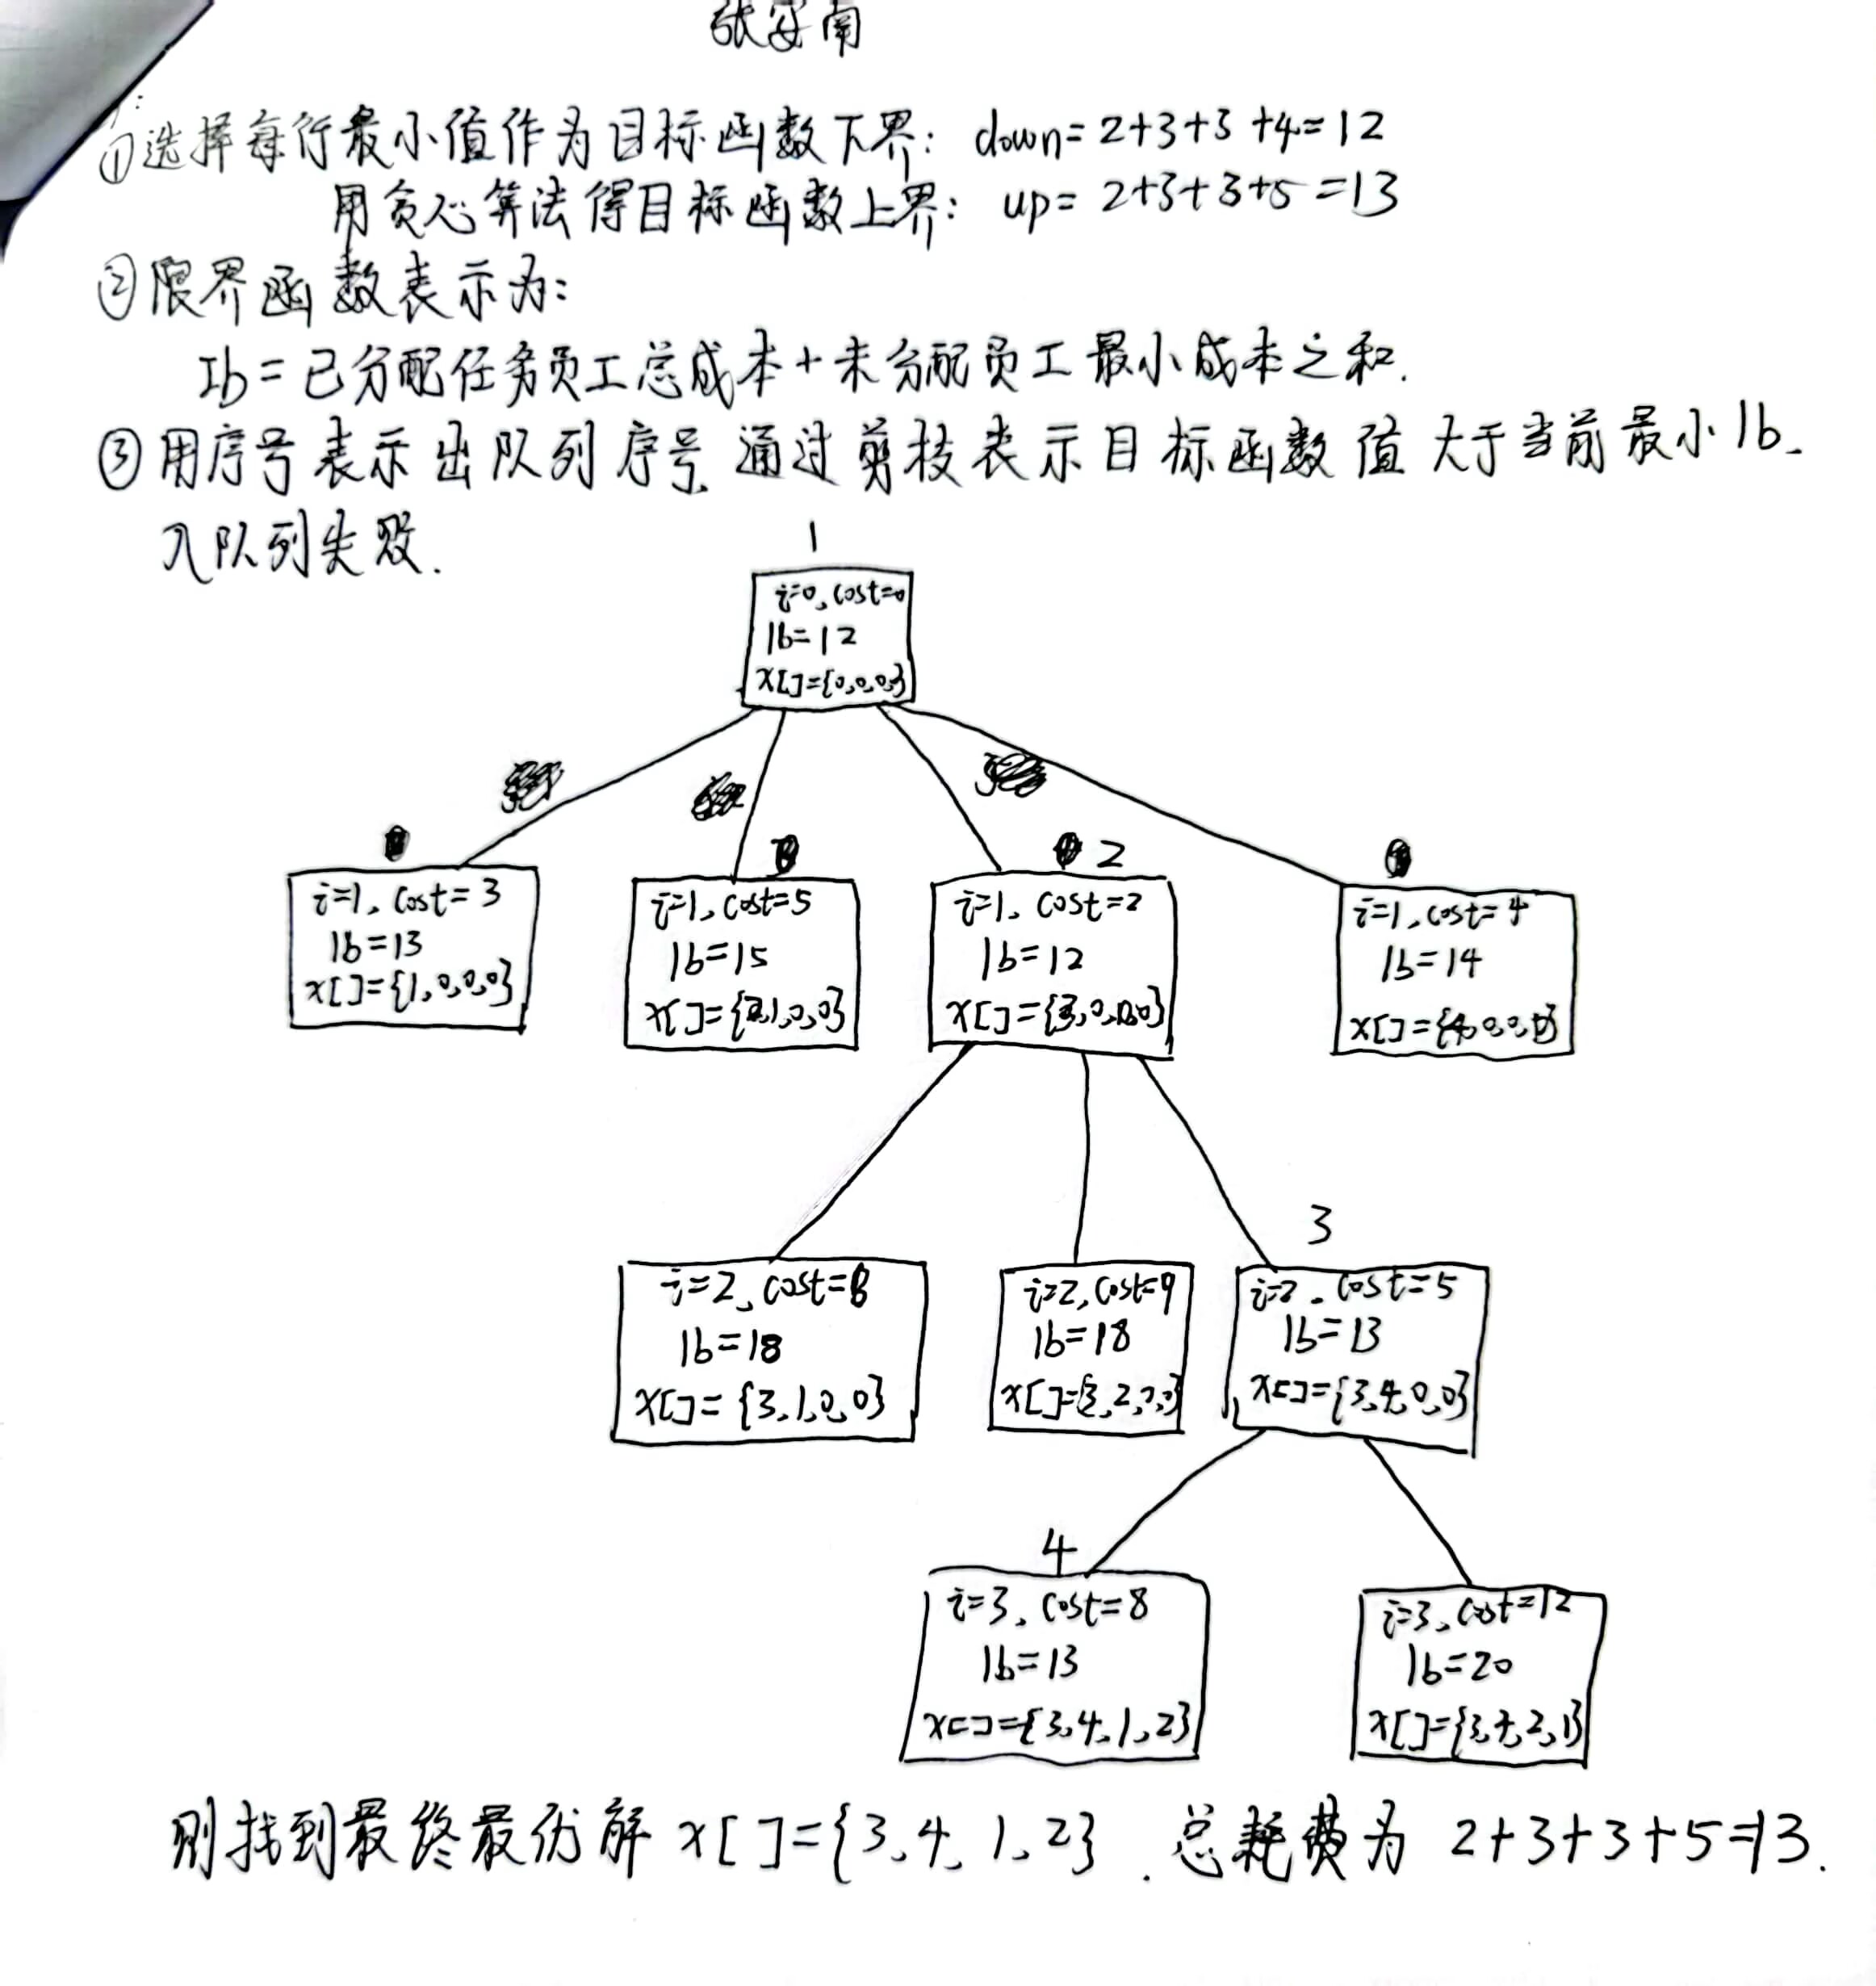 张安南
①选择每行最小值作为目标函数下界: down=2+3+3+4=12
用贪心算法得目标函数上界: up= 2+3+3+5=13
②限界函数表示为:
Ib=已分配任务员工总成本+未分配员工最小成本之和.
③用序号表示出队列序号,通过剪枝表示目标函数值大于当前最小lb.
入队列失败.
1
i=0, cost=0
lb=12
x[]={0,0,0,0}
2
i=1, cost=3
lb=13
x[]={1,0,0,0}
i=1, cost=5
lb=15
x[]={2,1,0,0}
i=1, cost=2
lb=12
x[]={3,0,0,0}
i=1, cost=4
lb=14
x[]={4,0,0,0}
3
i=2, cost=8
lb=18
x[]={3,1,0,0}
i=2, cost=9
lb=18
x[]={3,2,0,0}
i=2, cost=5
lb=13
x[]={3,4,0,0}
4
i=3, cost=8
lb=13
x[]={3,4,1,2}
i=3, cost=12
lb=20
x[]={3,4,2,1}
则找到最终最优解 x[]={3,4,1,2}.总耗费为 2+3+3+5=13.